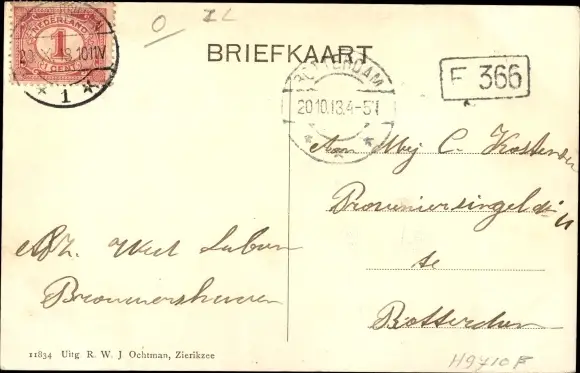 O ZL
NEDERLAND
1
1 CENT
10-11V
1
BRIEFKAART
ROTTERDAM
20 10.13.4-5N
F 366
Aan Mej C. Kosten
Provenierssingel
11
te
Rotterdam
Afz. West
Brouwershaven
11834 Uitg R. W. J Ochtman, Zierikzee
H9710F